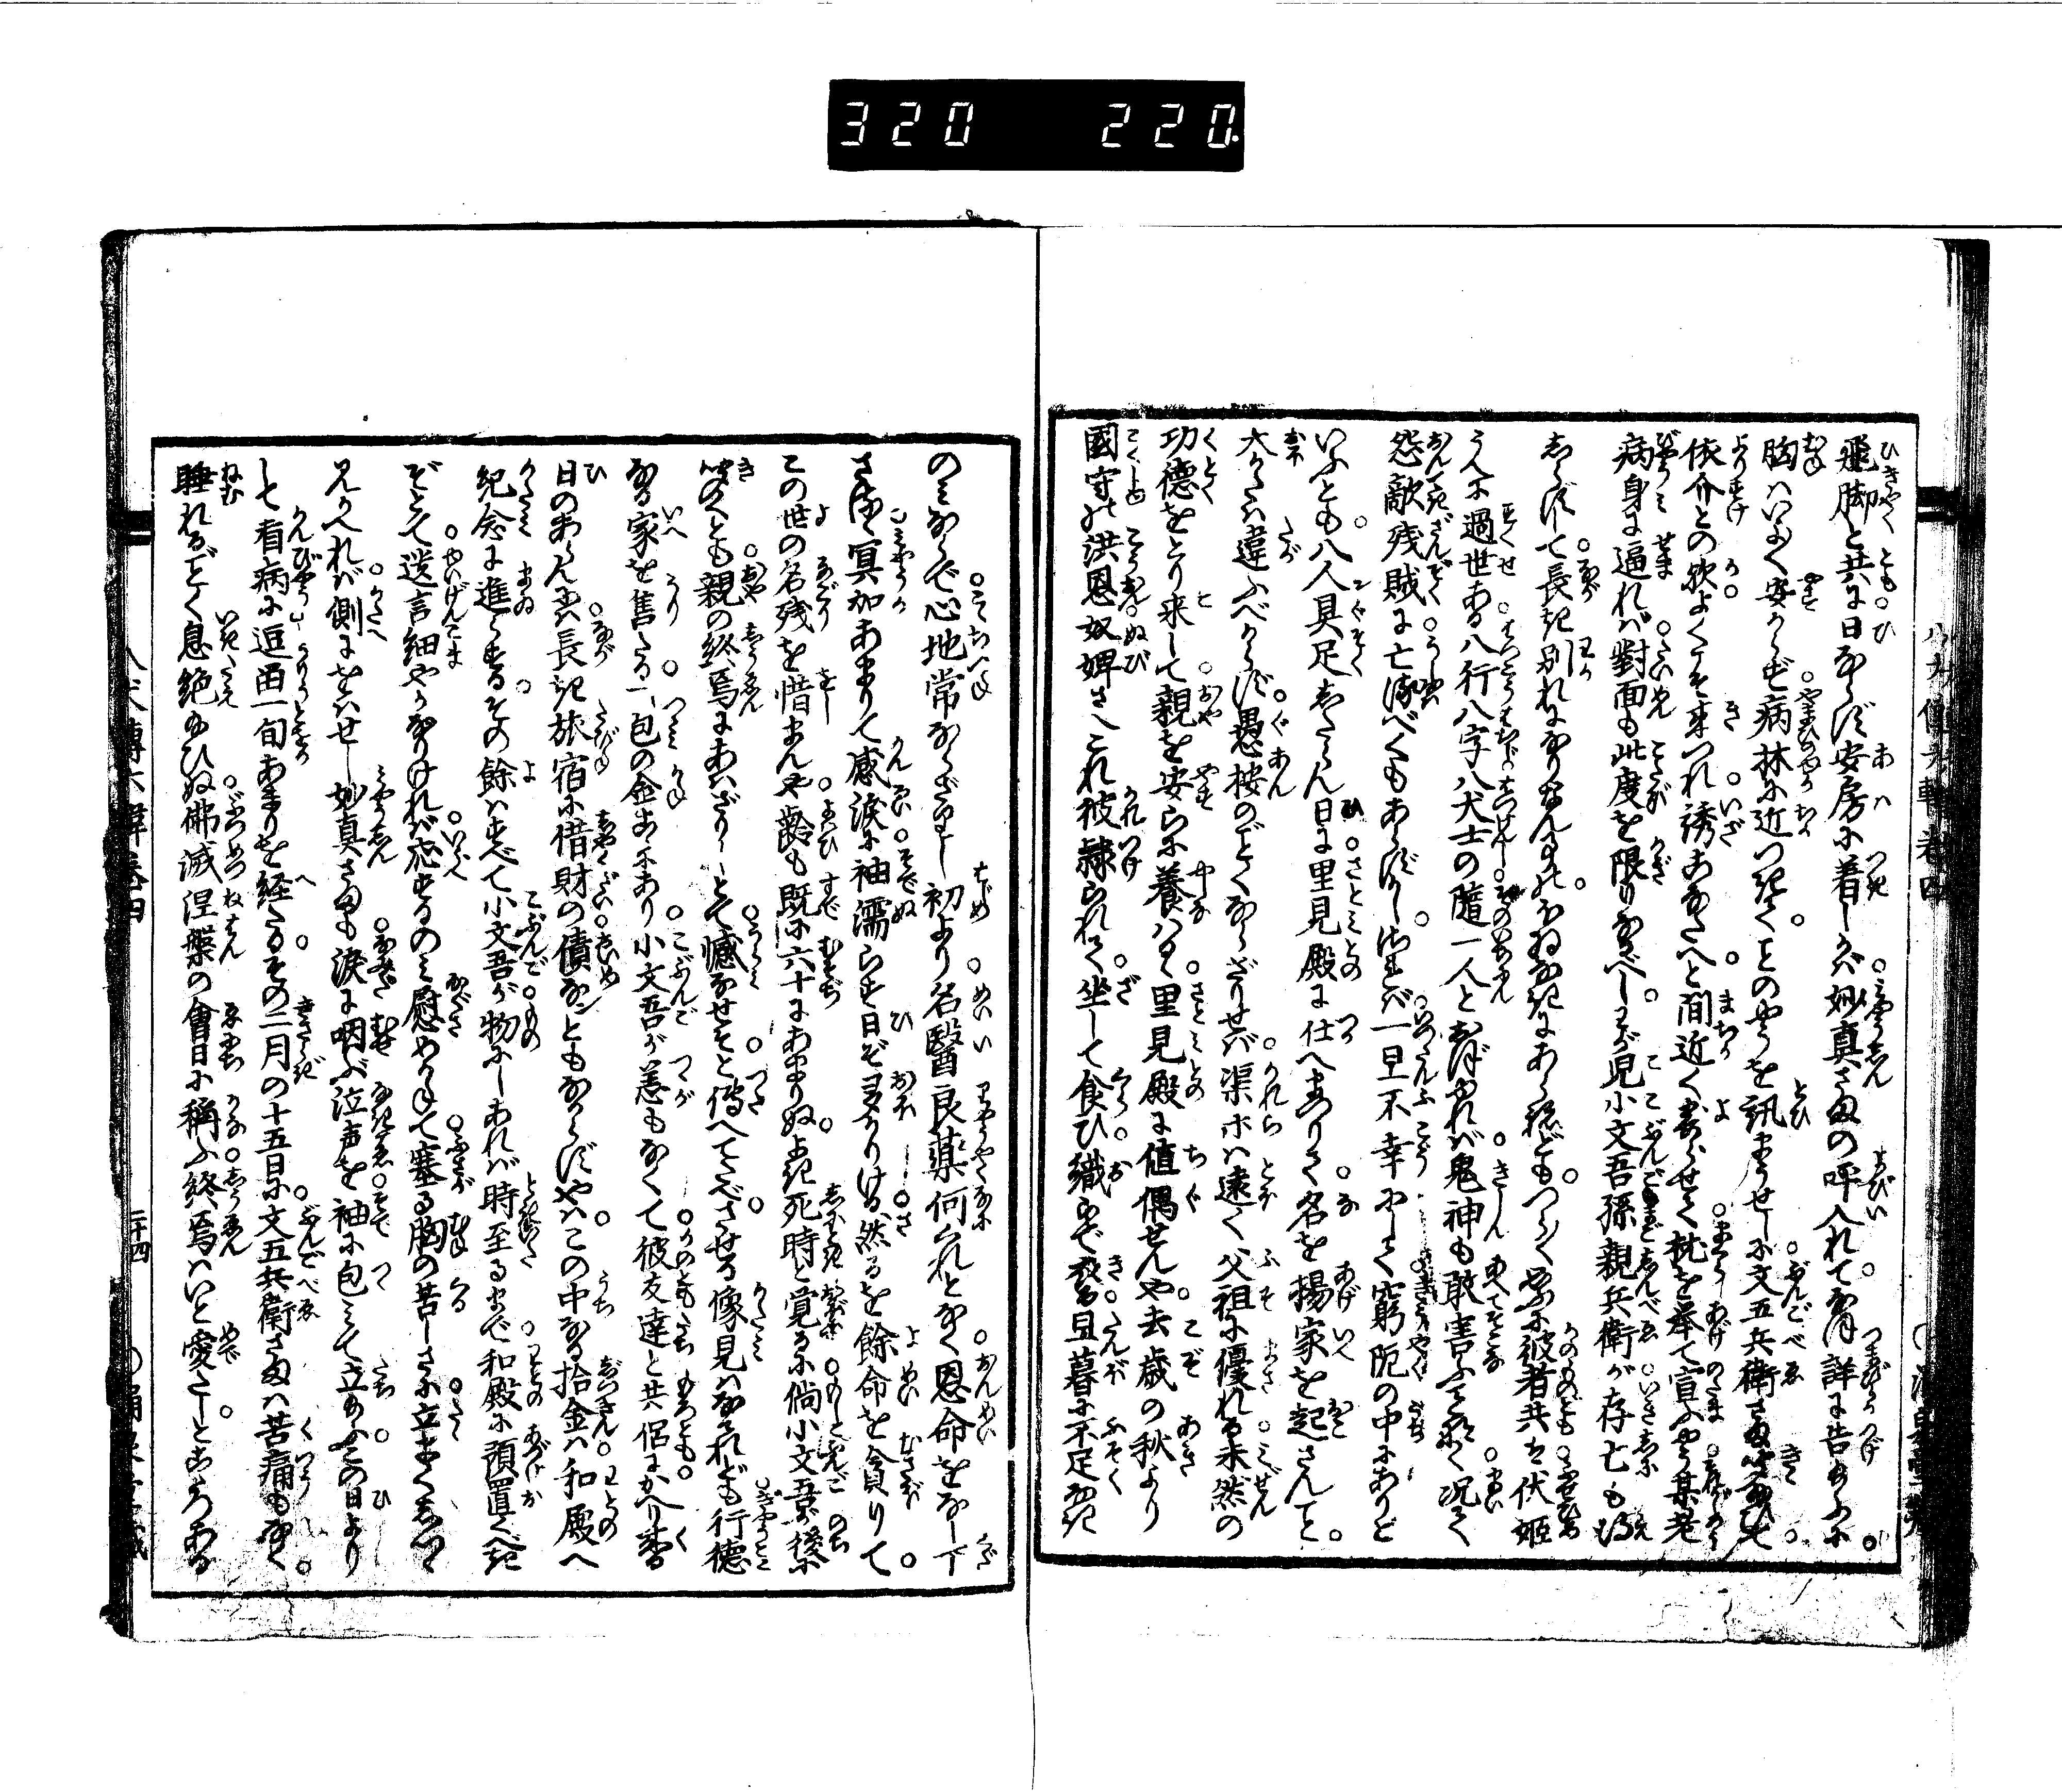 320 220
飛脚と共に日ならず安房に着しかば妙真さまの呼入れてなほ詳に告給ふに
胸はいよ〳〵安からず病牀に近つきてことのやうを訊まうせしに文五兵衛さま笑ひて
依介との歟よくこそ来つれ誘こなたへと間近くよらせて枕を挙て宣ふやう某老
病身に逼れば對面も此度を限りなるべしわが児小文吾孫親兵衛が存亡も得
しらずして長き別れになりなん事のほゐなきにあらねどもつら〳〵思ふに彼者共は伏姫
うへに過世ある八行八字八犬士の隨一人とおぼゆれば鬼神も敢害ふことなく況て
怨敵残賊に亡さるべくもあらずかし譬ば一旦不幸にして窮阨の中にありと
いふとも八人具足したらん日に里見殿に仕へまつりて名を揚家を起さんこと
大かたは違ふべからず愚按のごとくならざりせば渠等は遠く父祖に優れる未然の
功徳をとり来して親を安らに養はん里見殿に値偶せんや去歳の秋より
國守の洪恩奴婢さへこれ彼隷られて坐して食ひ織らで被る旦暮に不足なき
のみならで心地常ならざりし初より名醫良薬何くれとなく恩命をなし下
さる冥加あまりて感涙に袖濡らせし日ぞ多かりける然るを餘命を貪りて
この世の名残を惜まんや齢も既に六十にあまりぬよき死時と覚るに倘小文吾が後に
聞くとも親の終焉にあはざりしとて憾なせそと傳へてたべさせる像見はなけれども行徳
なる家を售たる一包の金こゝにあり小文吾が恙もなくて彼友達と共侶にかへり来る
日のあらんには長き旅宿に借財の債なンどもなからずやはこの中なる拾金は和殿へ
紀念に進らするその餘はすべて小文吾が物にしあれば時至るまで和殿に預置くべき
ぞとて遺言細やかなりければ応するのみ慰めかねて塞る胸の苦しさに立まくしつゝ
見かへれば側にをはせし妙真さまも涙に咽ぶ泣声を袖に包みて立給ふこの日より
して看病に逗畄一旬あまりを経たるその二月の十五日に文五兵衛さまは苦痛もなく
睡れるごとく息絶給ひぬ佛滅涅槃の會日に稱ふ終焉はいと愛たしとこゝろある
八犬傳六輯巻四
二十四